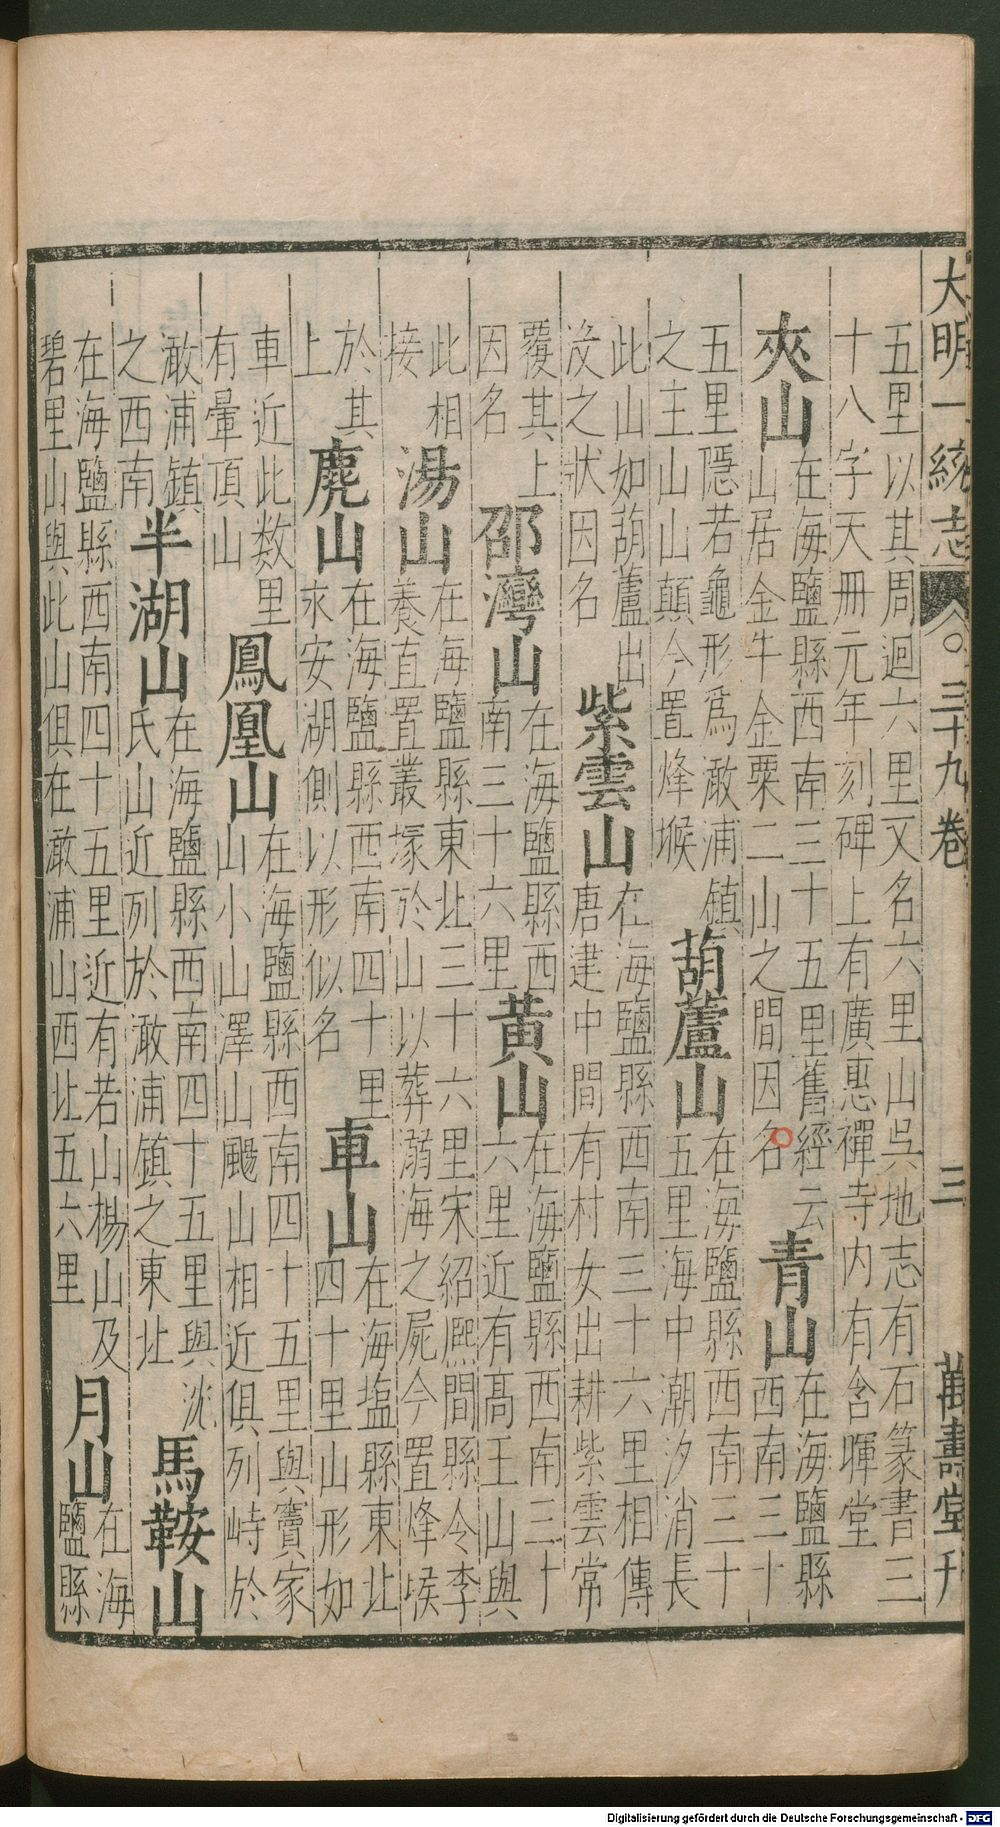 大明一統志 三十九卷 三 萬壽堂刊
五里以其周迴六里又名六里山吳地志有石篆書三
十八字天冊元年刻碑上有廣惠禪寺内有含暉堂
夾山 在海鹽縣西南三十五里舊經云
山居金牛金粟二山之間因名 青山 在海鹽縣
西南三十
五里隱若龜形爲澉浦鎮
之主山山顛今置烽堠 葫蘆山 在海鹽縣西南三十
五里海中潮汐消長
此山如葫蘆出
没之狀因名 紫雲山 在海鹽縣西南三十六里相傳
唐建中間有村女出耕紫雲常
覆其上
因名 邵灣山 在海鹽縣西
南三十六里 黄山 在海鹽縣西南三十
六里近有高王山與
此相
接 湯山 在海鹽縣東北三十六里宋紹熈間縣令李
養直置叢塚於山以葬溺海之屍今置烽堠
於其
上 麂山 在海鹽縣西南四十里
永安湖側以形似名 車山 在海塩縣東北
四十里山形如
車近此数里
有暈頂山 鳳凰山 在海鹽縣西南四十五里與寶家
山小山澤山颺山相近俱列峙於
澉浦鎮
之西南 半湖山 在海鹽縣西南四十五里與沈
氏山近列於澉浦鎮之東北 馬鞍山
在海鹽縣西南四十五里近有若山楊山及
碧里山與此山俱在澉浦山西北五六里 月山 在海
鹽縣
Digitalisierung gefördert durch die Deutsche Forschungsgemeinschaft - DFG